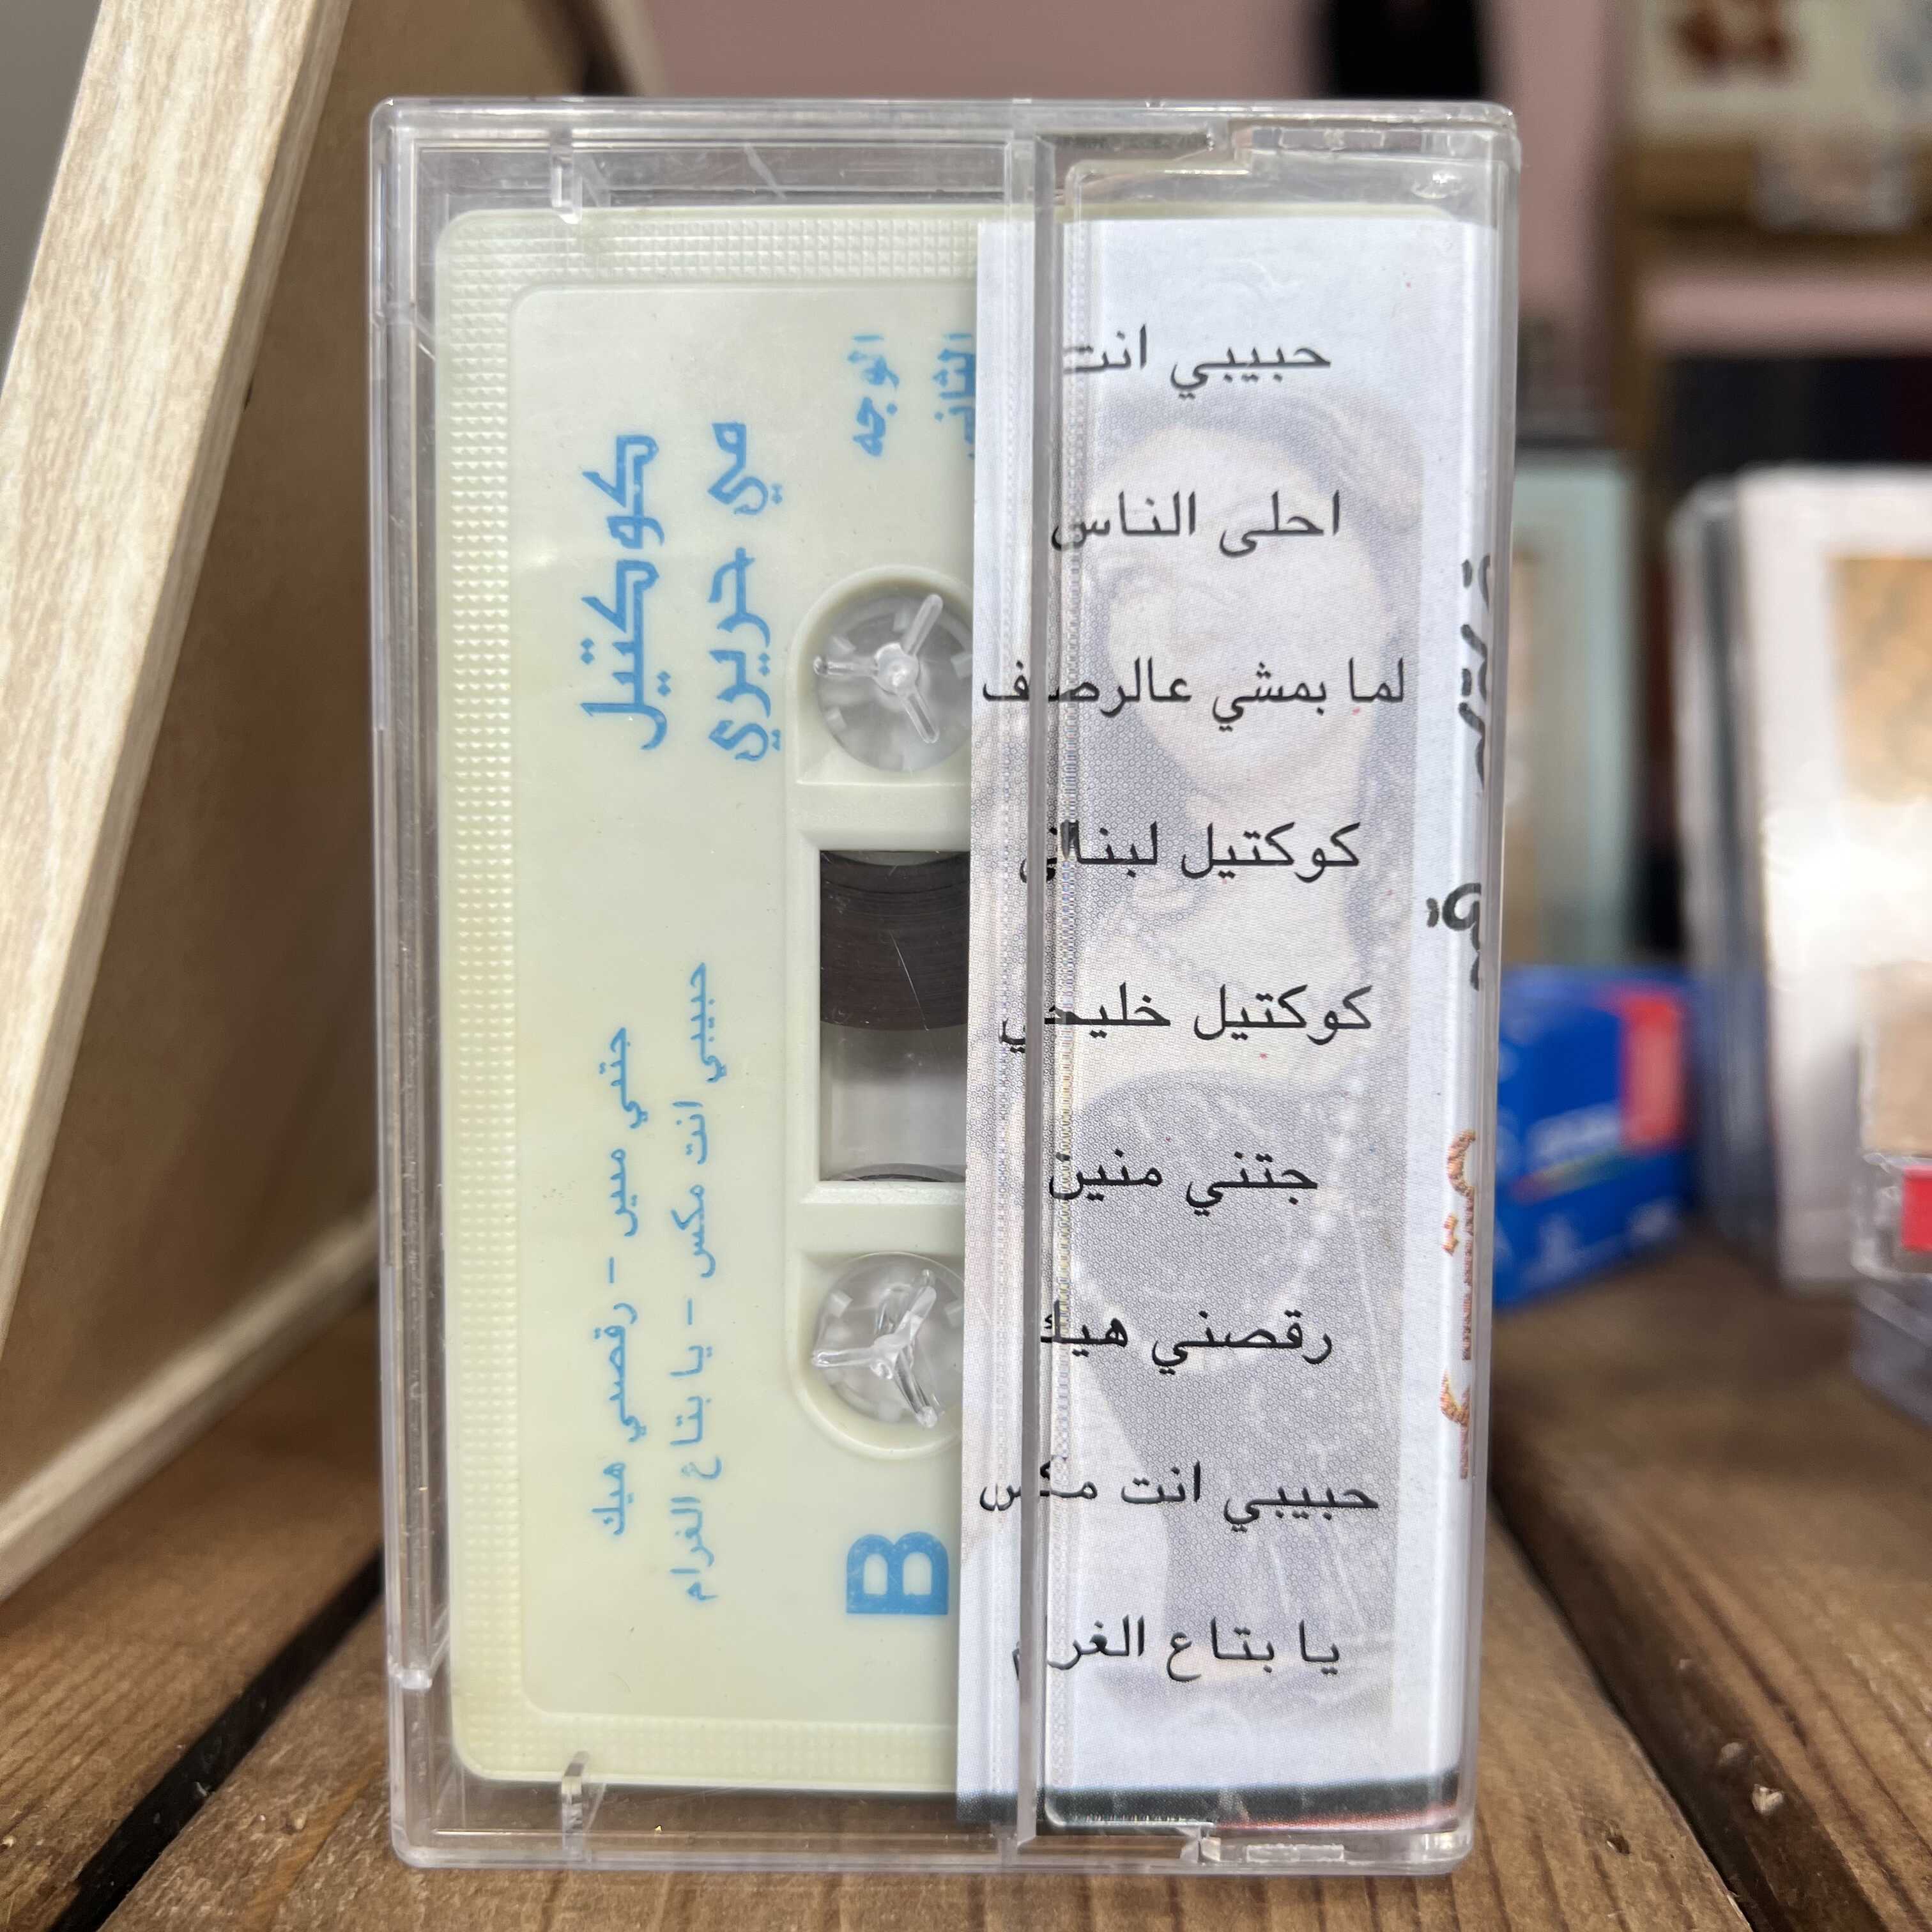 كوكتيل
مي حريري
الوجه
جتني منين - رقصني هيك
حبيبي انت مكس - يا بتاع الغرام
B
حبيبي انت
احلى الناس
لما بمشي عالرصيف
كوكتيل لبناني
كوكتيل خليجي
جتني منين
رقصني هيك
حبيبي انت مكس
يا بتاع الغرام